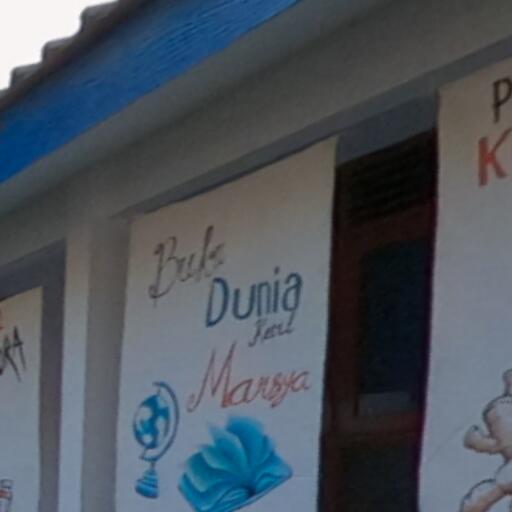 Buka
Dunia
Kecil
Marsya
P
K